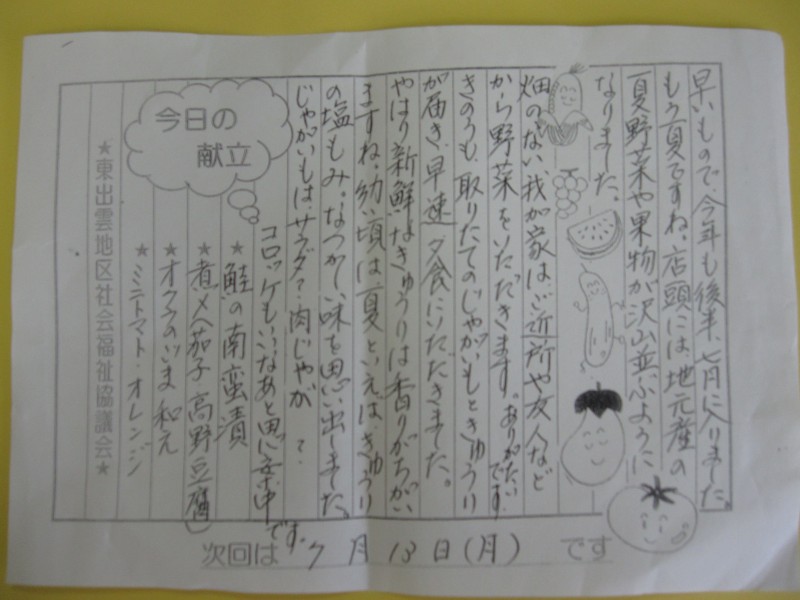 早いもので、今年も後半、七月に入りました。
もう夏ですね。店頭には、地元産の
夏野菜や果物が沢山並ぶように
なりました。
畑のない我が家は、ご近所や友人など
から野菜をいただきます。ありがたいです。
きのうも、取りたてのじゃがいもときゅうり
が届き、早速夕食にいただきました。
やはり新鮮なきゅうりは香りがちがい
ますね。幼い頃は、夏といえば、きゅうり
の塩もみ。なつかしい味を思い出しました。
じゃがいもは、サラダ?肉じゃが?
コロッケもいいなあと思案中です。
今日の
献立
★鮭の南蛮漬
★煮〆(茄子・高野豆腐)
★オクラのごま和え
★ミニトマト・オレンジ
★東出雲地区社会福祉協議会★
次回は7月13日(月)です